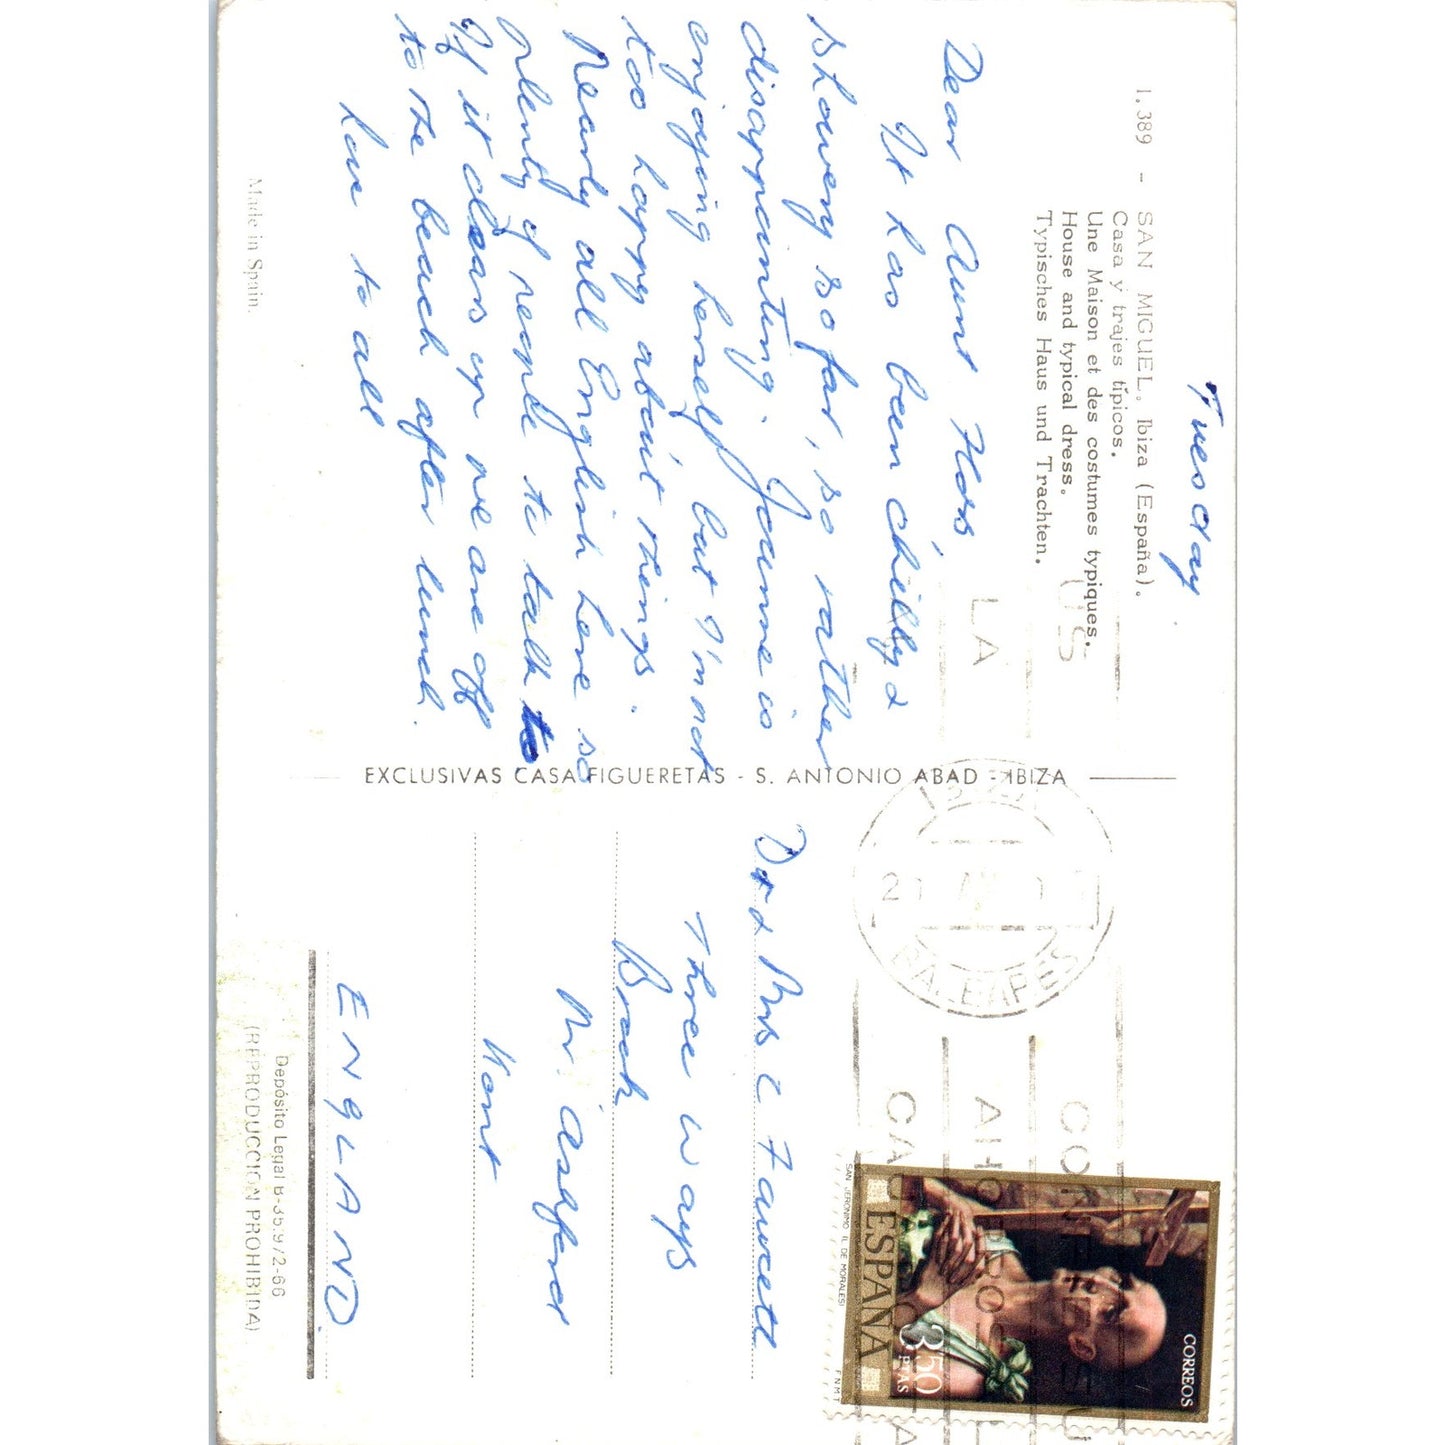 Tuesday
1.389 - SAN MIGUEL, Ibiza (España).
Casa y trajes típicos.
Une Maison et des costumes typiques.
House and typical dress.
Typisches Haus und Trachten.
Dear Aunt Floss
It has been chilly &
showery so far, so rather
disappointing. Joanne is
enjoying herself but I'm not
too happy about things.
Nearly all English here so
plenty of people to talk to
If it clears up we are off
to the beach after lunch
Love to all
Made in Spain.
EXCLUSIVAS CASA FIGUERETAS - S. ANTONIO ABAD - IBIZA
IBIZA
BALEARES
LA
CORREOS
ESPAÑA
3.50
PTAS
SAN JERONIMO (L. DE MORALES)
F.N.M.T.
Dr & Mrs C Fawcett
Three Ways
Brook
Nr. Ashford
Kent
ENGLAND
Depósito Legal B-35.972-66
(REPRODUCCION PROHIBIDA)